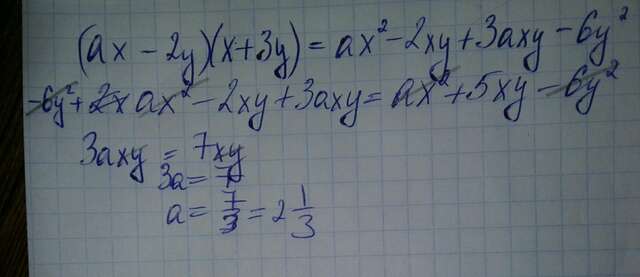 (ax - 2y)(x + 3y) = ax² - 2xy + 3axy - 6y²
-6y² + 2x ax² - 2xy + 3axy = ax² + 5xy - 6y²
3axy = 7xy
3a = 7
a = 7/3 = 2 1/3